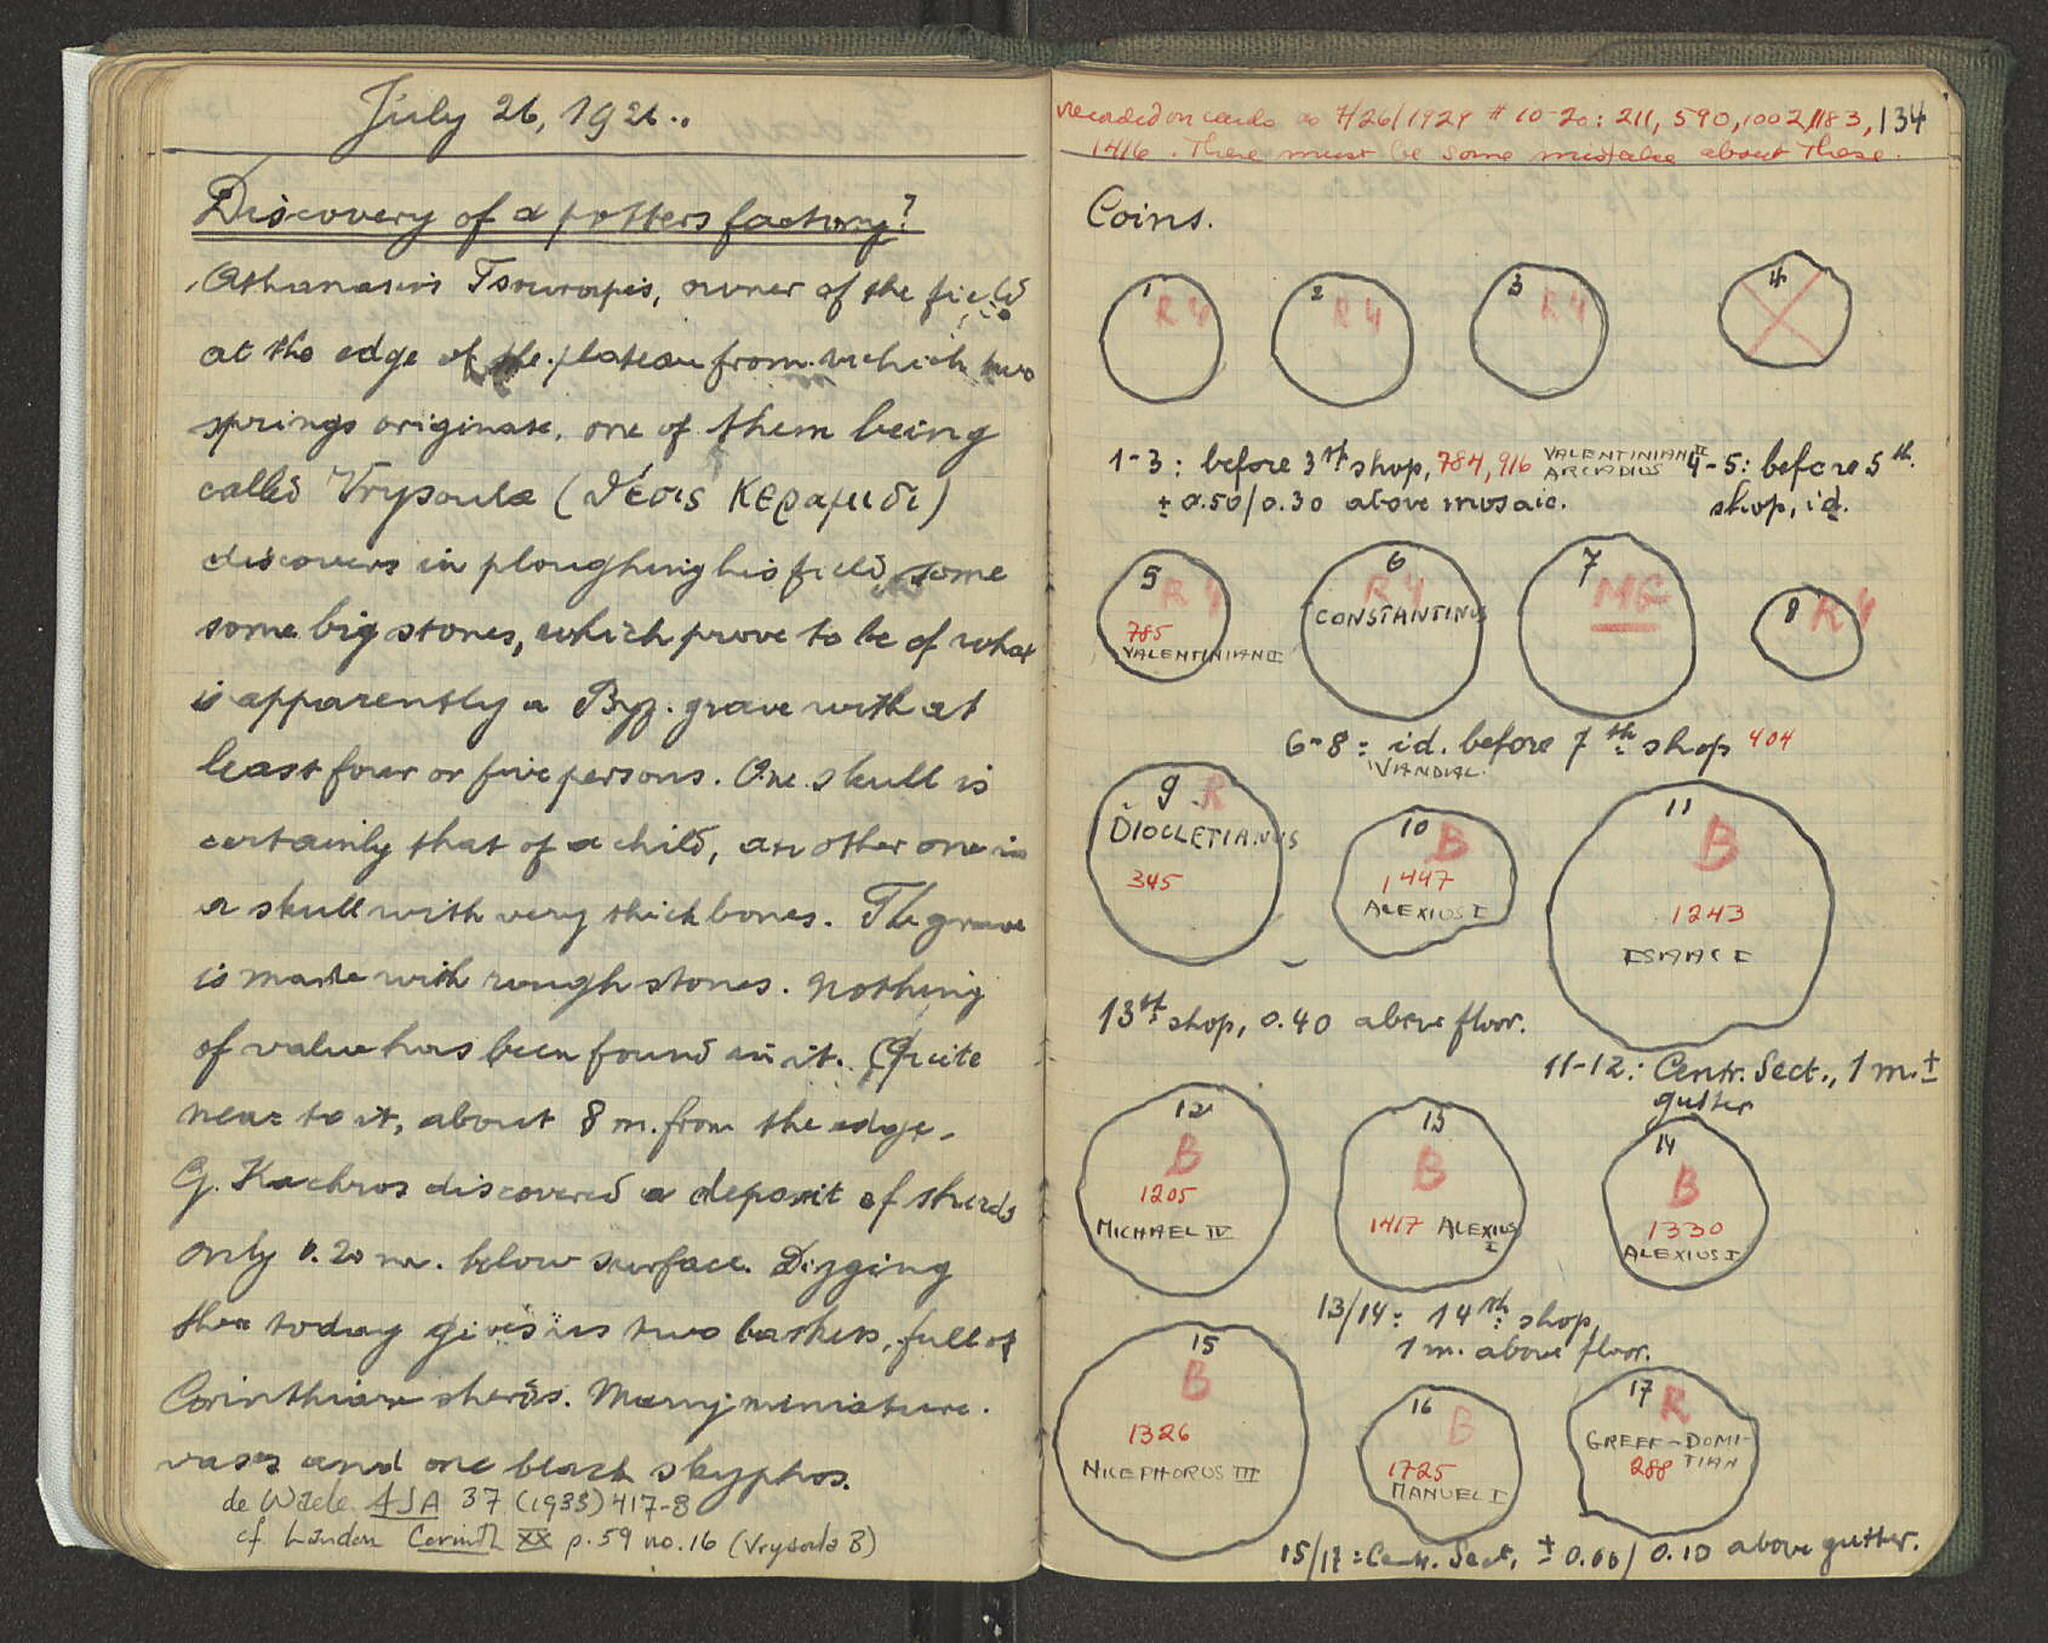 July 26, 192
Discovery of a potters factory?
Athanasios Tsourapis, owner of the field
at the edge of the plateau from which two
springs originate, one of them being
called Vrysoula (θέσις Κεραμιδι)
discovers in ploughing his field some
some big stones, which prove to be of what
is apparently a Byz. grave with at
least four or five persons. One skull is
certainly that of a child, another one is
a skull with very thick bones. The grave
is made with rough stones. Nothing
of value has been found in it. Quite
near to it, about 8 m. from the edge.
G. Kachros discovered a deposit of sherds
only 0.20 m. below surface. Digging
there today gives us two baskets, full of
Corinthian sherds. Many miniature
vases and one black skyphos.
de Waele AJA 37 (1933) 417-8
cf. Landon Corinth XX p. 59 no. 16 (Vrysoula B)
recorded on cards as 7/26/1929 # 10-20: 211, 590, 1002, 1183,
1416. There must be some mistake about these.
134
Coins.
1 R4
2 R4
3 R4
4
1-3: before 3rd shop, 784, 916 VALENTINIAN II ARCADIUS
± 0.50/0.30 above mosaic.
4-5: before 5th.
shop, id.
5 R4
785
VALENTINIAN II
6 R4
CONSTANTINUS
7 MG
8 R4
6-8: id. before 7th shop 404
VANDAL.
9 R
DIOCLETIANUS
345
10 B
1447
ALEXIUS I
11 B
1243
ISAAC I
13th shop, 0.40 above floor.
11-12: Centr. Sect., 1 m. ±
gutter
12
B
1205
MICHAEL IV
13
B
1417 ALEXIUS I
14
B
1330
ALEXIUS I
13/14: 14th shop,
1 m. above floor.
15
B
1326
NICEPHORUS III
16 B
1725
MANUEL I
17 R
GREEK-DOMI-
TIAN
288
15/17: Centr. Sect, ± 0.00/0.10 above gutter.